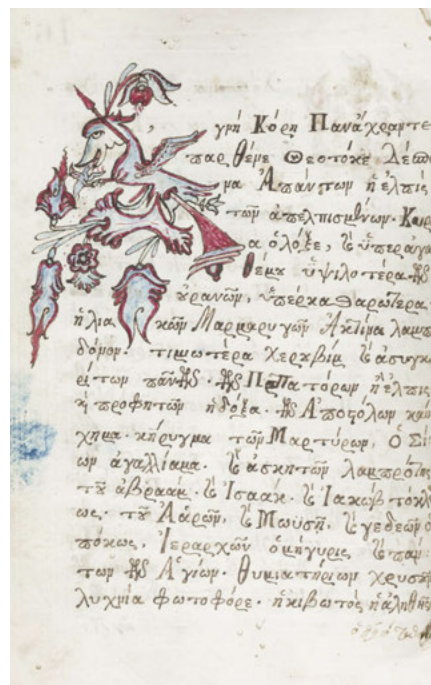 γνὴ Κόρη Πανάχραντε
παρθένε Θεοτόκε Δέσποι
μα Ἀπάντων ἡ ἐλπὶς
τῶν ἀπελπισμένων. Καιρ
α ὁλόξε, ϗ ὑπεραγα
θέμου ὑψιλοτέρα τῶν
κρανῶν, ὑπέρκαθαρωτέρα
ἡλιακῶν Μαρμαρυγῶν Ἀκτίμα λαμπ
δόνον. τιμωτέρα χερκβὶμ ϗ ἀσυγκ
εί των παν τῶν. τῶν Προπατόρων ἡ ἐλπὶς
κὴ προφητῶν ἡ δόξα. τῶν Ἀποστόλων καύ
χημα. κήρυγμα τῶν Μαρτύρων, ὁ Σί
ων ἀγαλλίαμα. ϗ ἀσκητῶν λαμπρότης
τοῦ ἀβραάμ. ϗ Ἰσαάκ. ϗ Ἰακὼβ τὸ κλ
ως. τοῦ Ἀάρὼν, ϗ Μωϋσῆ. ϗ γεδεὼν ὁ
πόκως, Ἱεραρχῶν ὁμήγυρις ϗ πάν
των τῶν Ἁγίων. θυμιατήριων χρυσ
λυχνία φωτοφόρε. ἡ κιβωτὸς ἡ ἀληθι